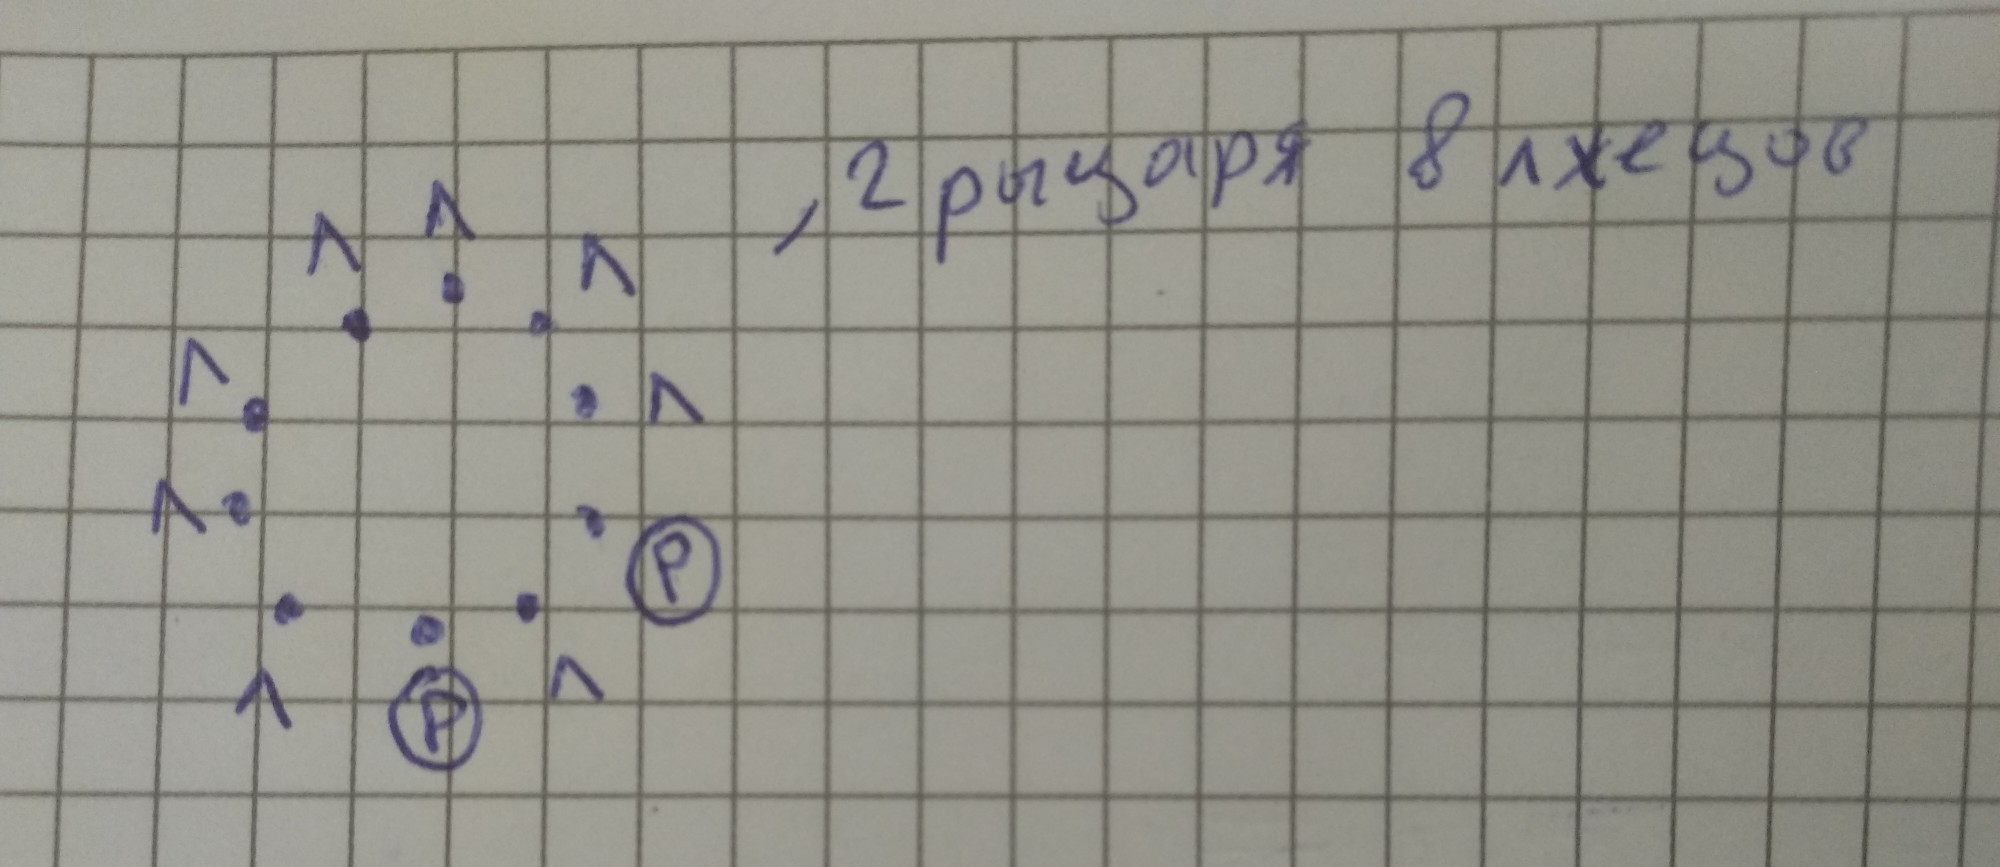 , 2 рыцаря 8 лжецов
Л Л Л
Л Л
Л Р
Л Р Л